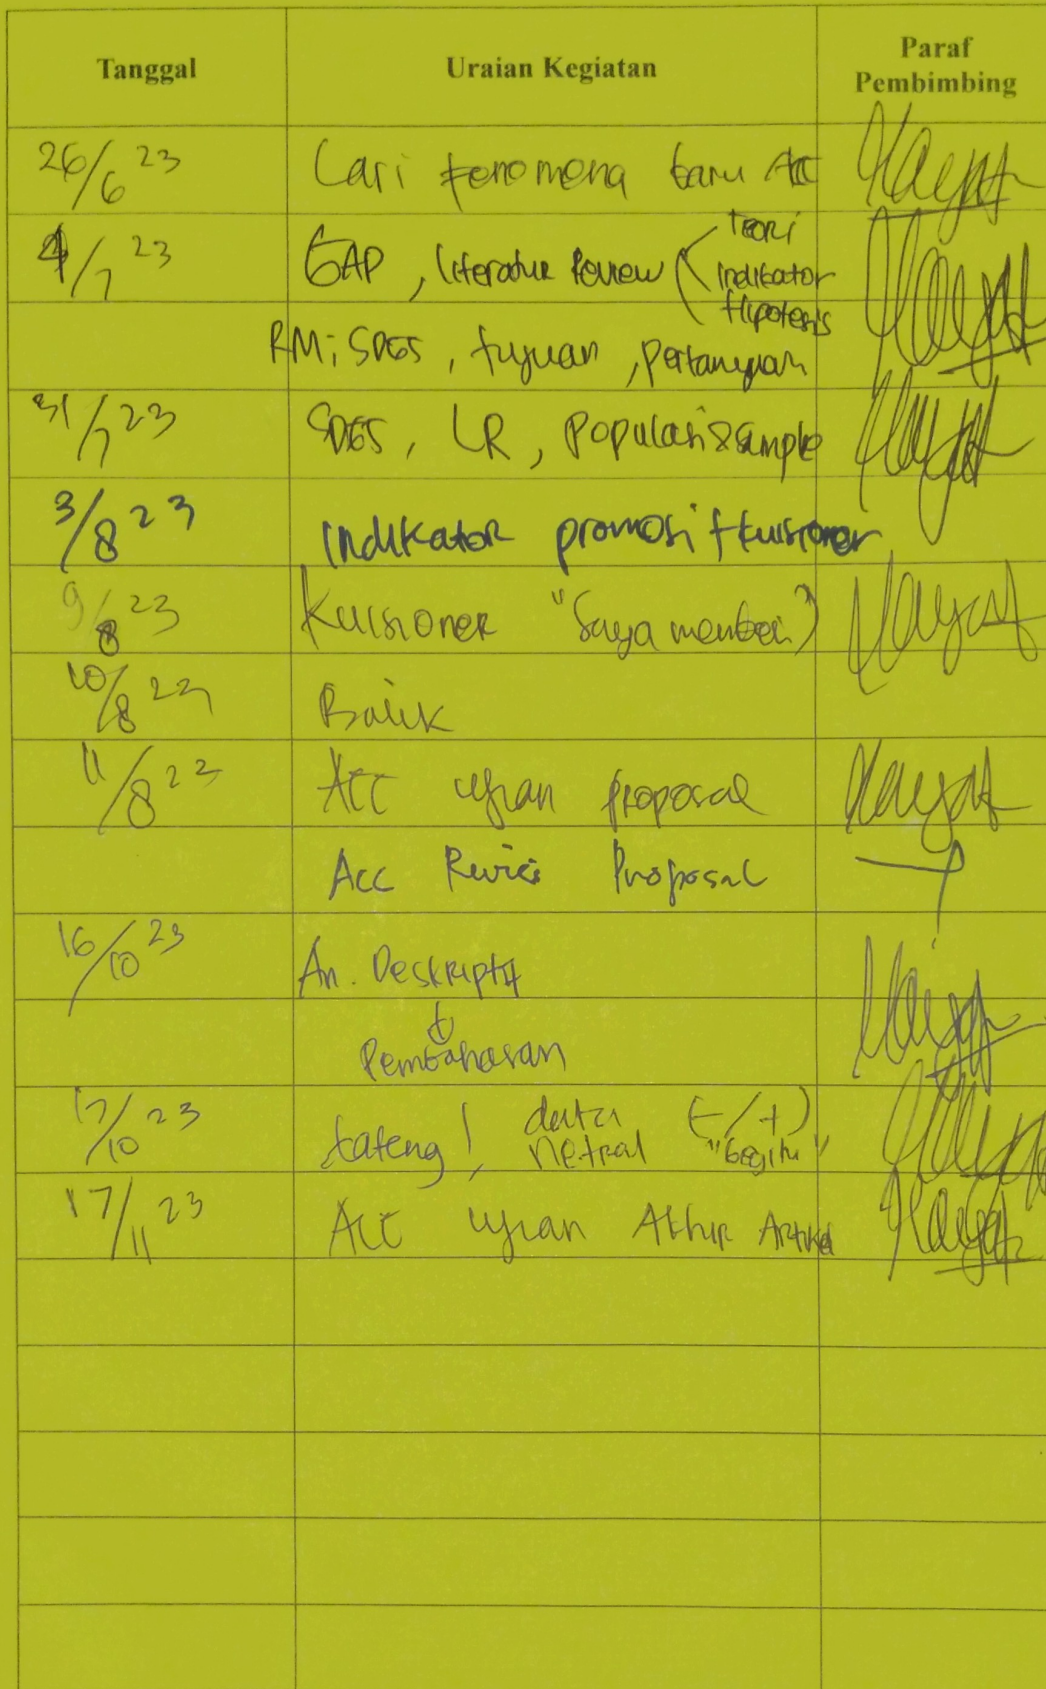 Tanggal Uraian Kegiatan Paraf Pembimbing
26/6 23 Cari fenomena baru Acc
4/7 23 GAP, literatur Review < Teori
indikator
Hipotesis
RM; SDGS, tujuan, pertanyaan
31/7 23 SDGS, LR, Populasi & Sample
3/8 23 indikator promosi + kuisioner
9/8 23 Kuisioner "Saya memberi"
10/8 23 Balik
11/8 23 Acc ujian proposal
Acc Revisi Proposal
16/10 23 An. Deskriptif
Pembahasan
17/10 23 data (-/+)
netral "begitu"
17/11 23 Acc ujian Akhir Artikel